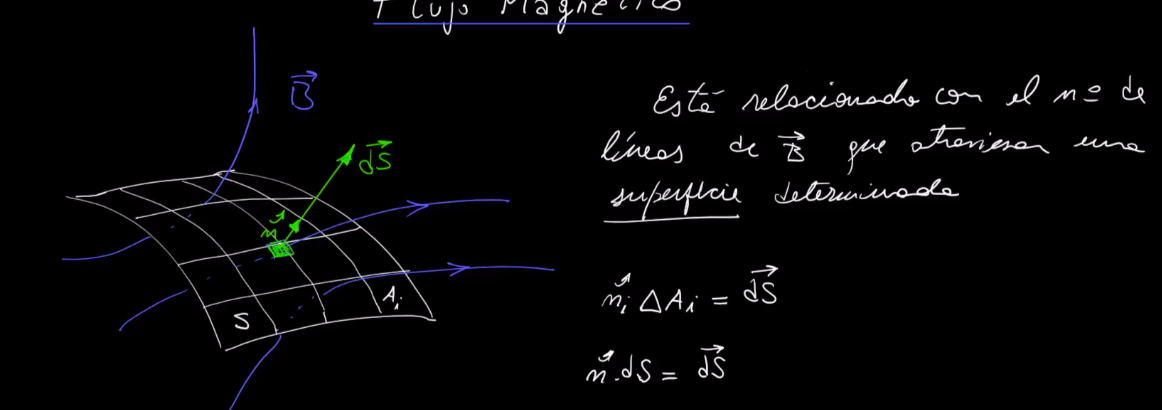 Flujo Magnético
B⃗
dS⃗
n⃗
S
Aᵢ
Está relacionado con el nº de
líneas de B⃗ que atraviesan una
superficie determinada
n⃗ᵢ ΔAᵢ = dS⃗
n⃗·dS = dS⃗